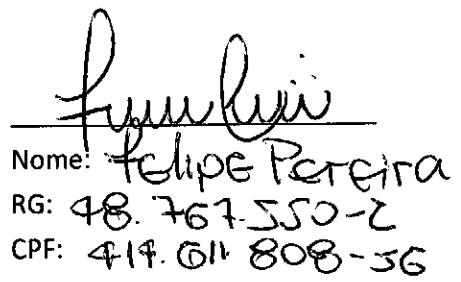 Nome: Felipe Pereira
RG: 48.767.550-2
CPF: 414.611.808-56